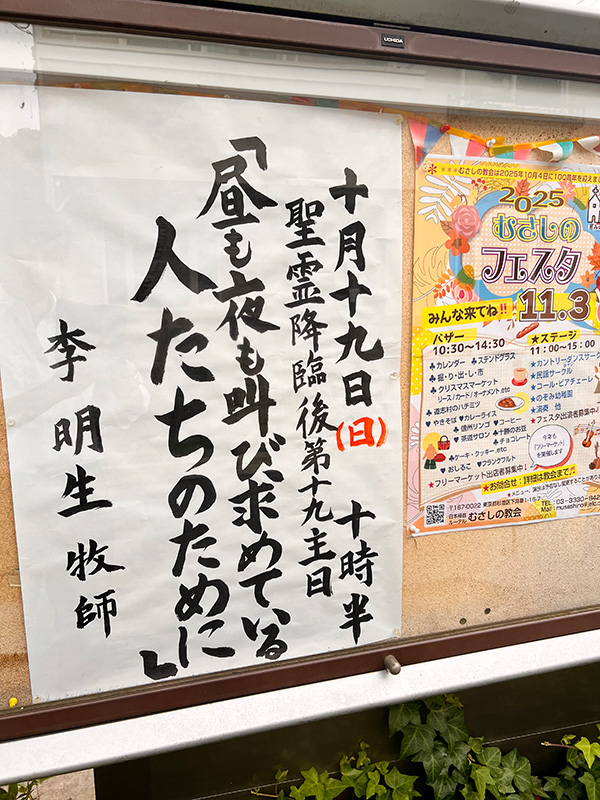 UCHIDA
十月十九日(日) 十時半
聖霊降臨後第十九主日
「昼も夜も叫び求めている
人たちのために」
李 明生 牧師
むさしの教会は2025年10月4日に100周年を迎えま
2025
むさしの
フェスタ
みんな来てね!! 11.3
バザー
10:30〜14:30
♣カレンダー ♣ステンドグラス
♣掘・り・出・し・市
♣クリスマスマーケット
リース/カード/オーナメント.etc
♣遊志村のハチミツ
♥やきそば ♥カレーライス
♣信州リンゴ ♥コーヒー
♥茶道サロン ♣十勝のお豆
♣チョコレート
♣ケーキ・クッキー.etc
♥おしるこ ♥フランクフルト
★フリーマーケット出店者募集中!
★ステージ
11:00〜15:00
★カントリーダンスサーク
★民謡サークル
★コール・ピアチェーレ
★のぞみ幼稚園
★演奏 他
★フェスタ出演者募集中
今年も
「フリーマーケット」
を開催します
★お問合せ:詳細は教会まで♪
★メニュー、演目は
〒167-0022 東京都杉並区下井草1-16-7
日本福音
ルーテル むさしの教会
TEL: 03-3330-842
Mail: musashino@jelc.